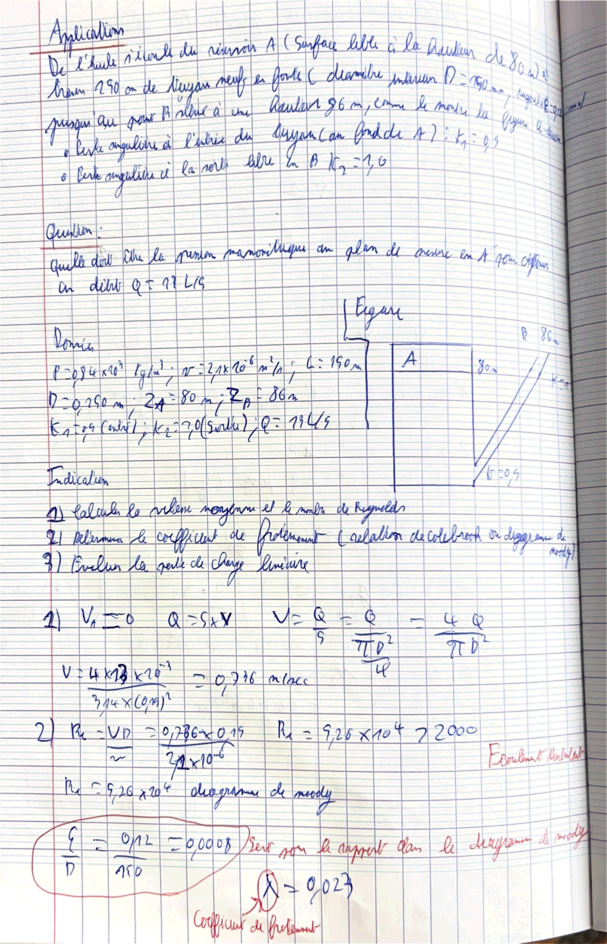 Application
De l'huile s'écoule du réservoir A (Surface libre à la hauteur de 80 m)
de tuyau neuf en fonte (diamètre intérieur D = 150 mm,
jusqu'au point B situé à une hauteur 86 m, comme le montre la figure
• Perte singulière à l'entrée du tuyau (au fond de A) : K1 = 0,5
• Perte singulière à la sortie libre en B K2 = 1,0
Question :
Quelle doit être la pression manométrique au plan de mesure en A pour obtenir
un débit Q = 13 L/s
Figure
Données
Kg/m³ ; ν = 2,1×10⁻⁶ m²/s ; L = 150 m
ZA = 80 m ; ZB = 86 m
K1 = 0,5 (entrée) ; K2 = 1,0 (sortie) ; Q = 13 L/s
A
80 m
B 86 m
K = 0,5
Indication
1) Calculer la vitesse moyenne et le nombre de Reynolds
2) Déterminer le coefficient de frottement (relation de colebrook ou diagramme de
moody)
3) Evaluer la perte de charge linéaire
1) V1 = 0 Q = S×V V = Q/S = Q/(πD²/4) = 4Q/πD²
V = 4×13×10⁻³/3,14×(0,15)² = 0,736 m/sec
2) Re = VD/ν = 0,736×0,15/2,1×10⁻⁶ Re = 5,26×10⁴ > 2000
Ecoulement turbulent
Re = 5,26×10⁴ diagramme de moody
ξ/D = 0,12/150 = 0,0008 Sert pour le rapport dans le diagramme de moody
λ = 0,023
Coefficient de frottement